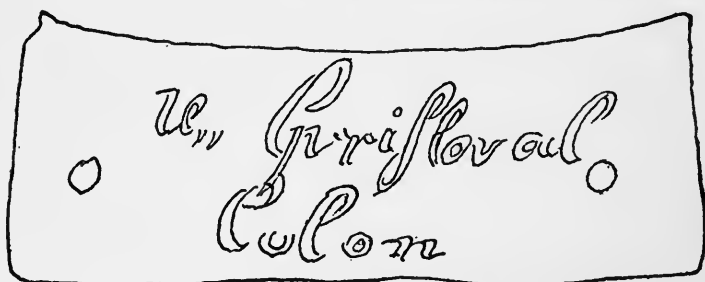 U,, Criſtoval
Colom